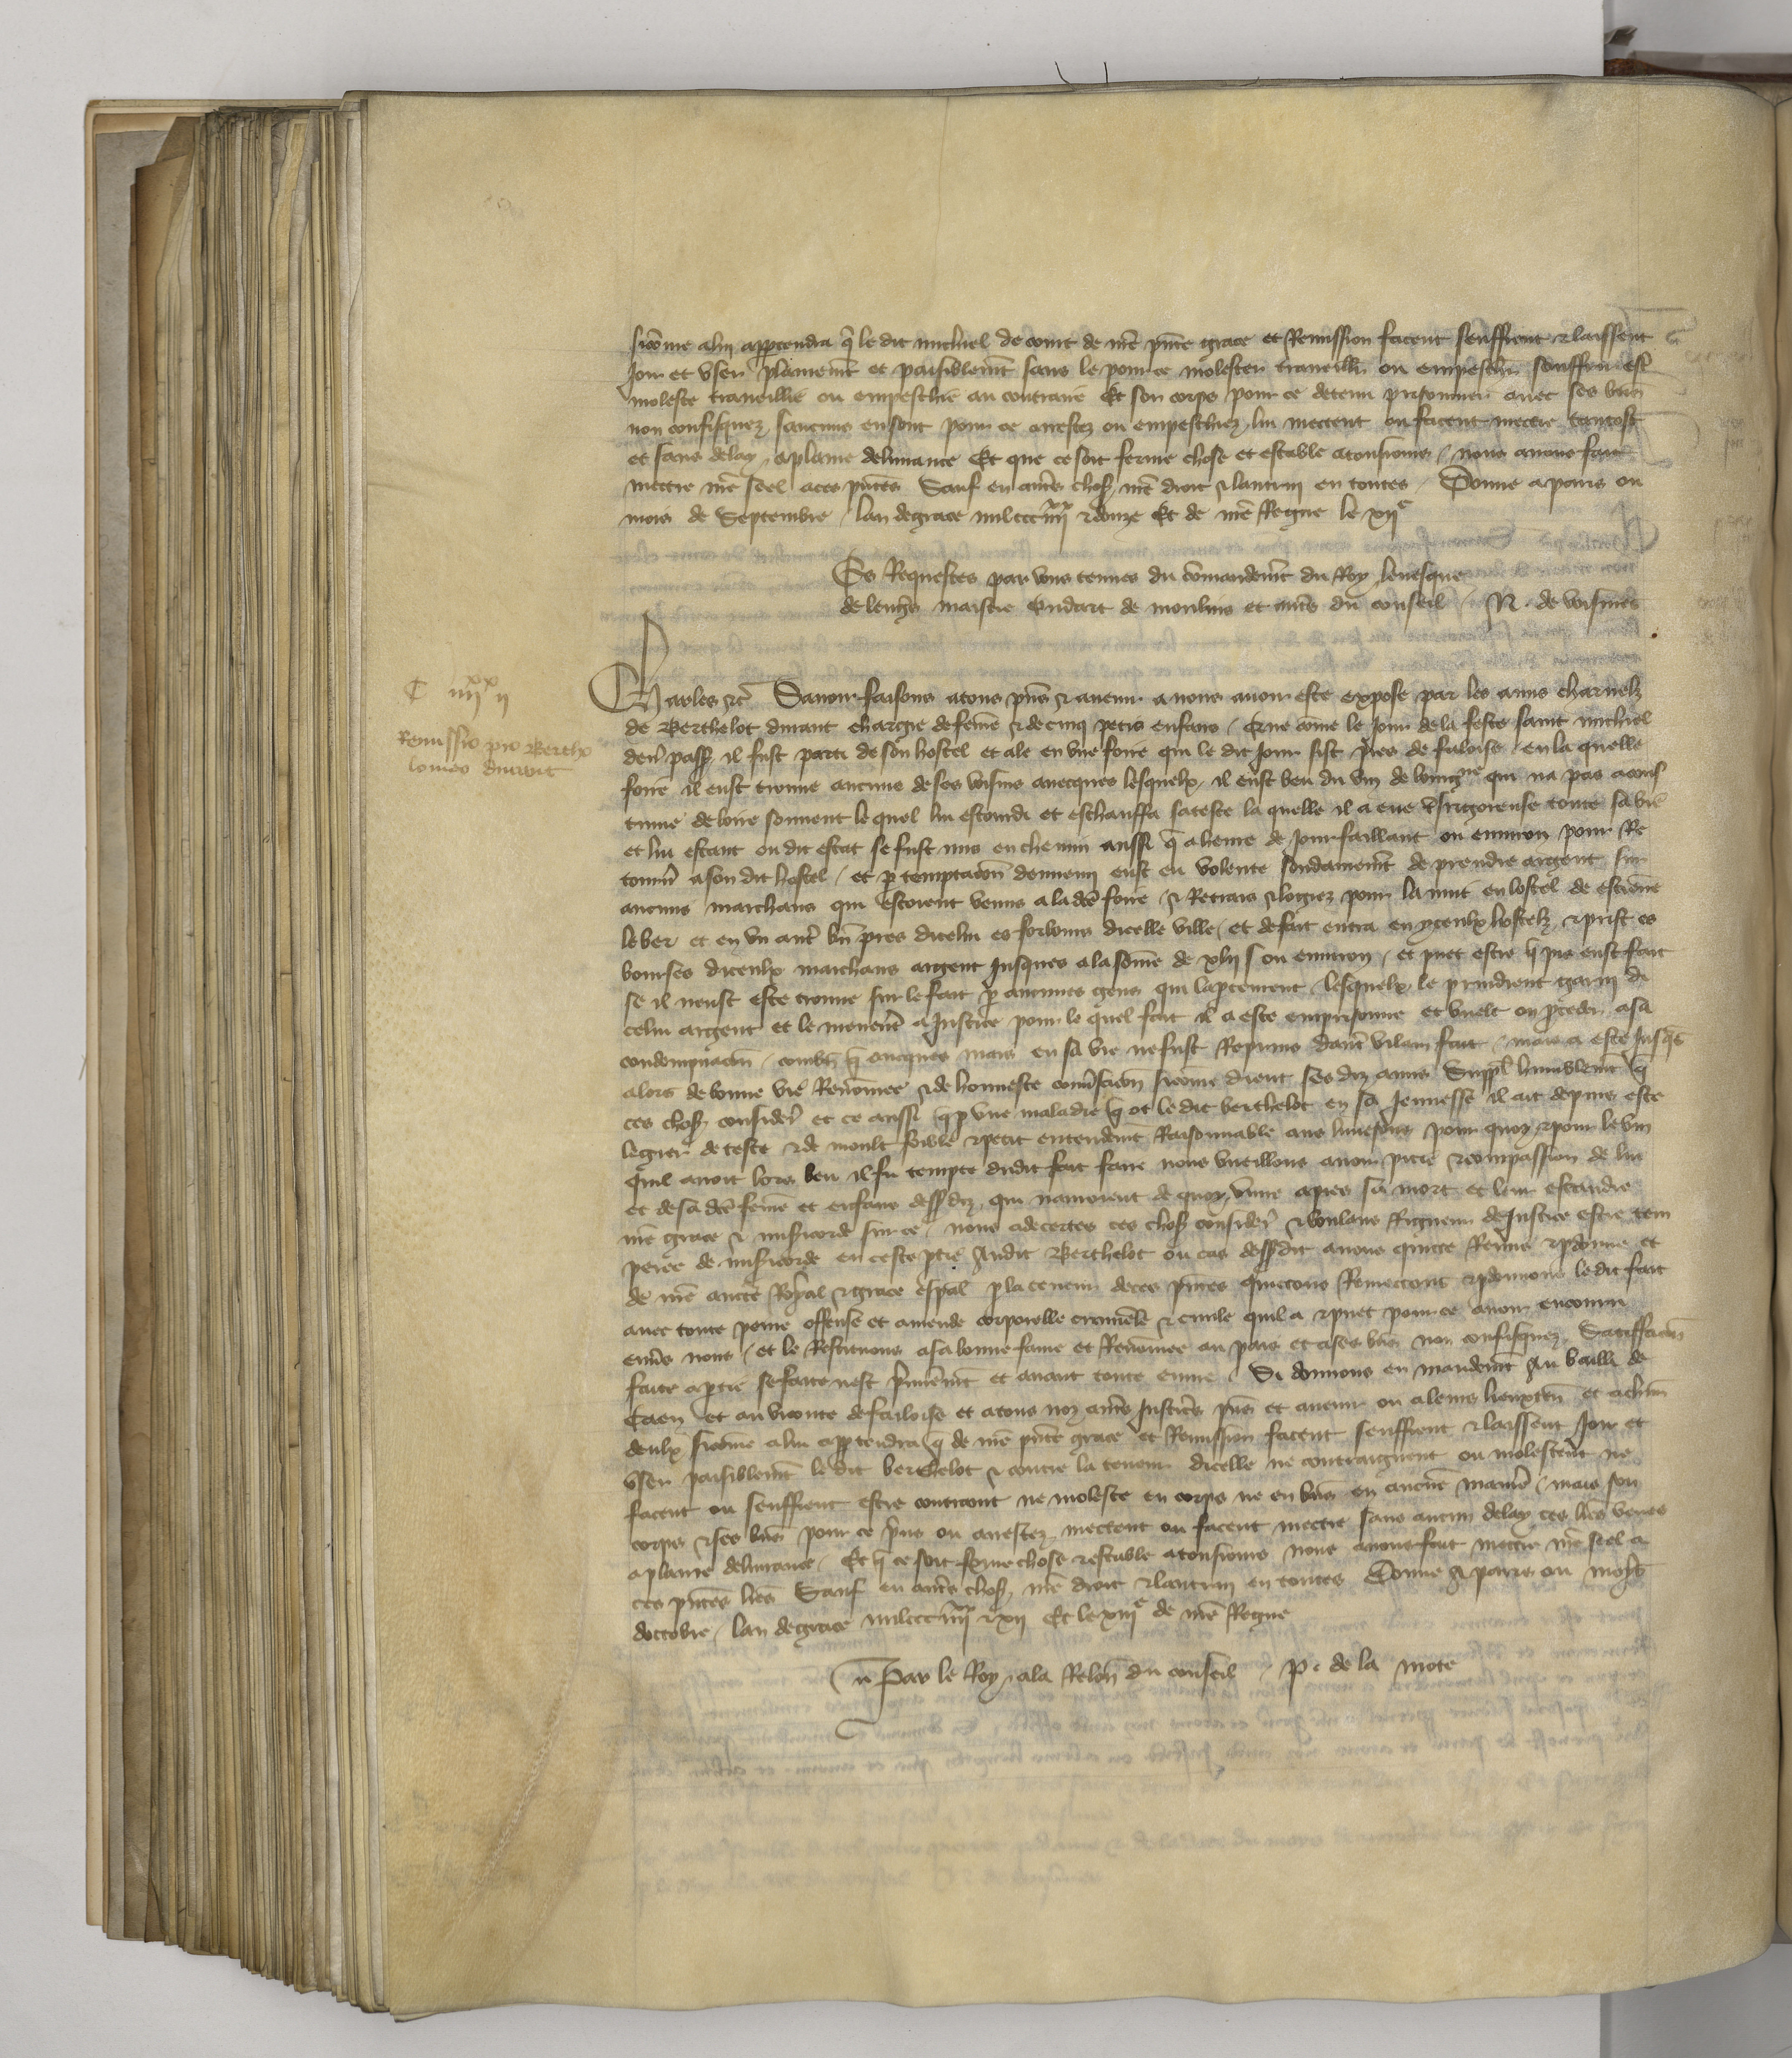 sicōme a lui appartendra q̄ le dit michiel de comt de nr̄e pn̄te grace et Remission facent seuffrent & laissent
Joir et vser plainemēt et paisiblemēt sans le pour ce molester trauaillier ou empeschier souffrir estr̄
moleste trauaillie ou empeschie au contraire Et son corps pour ce detenu prisonnier auec ses biēs
non confisquez saucuns en sont pour ce arrestez ou empeschiez lui mettent ou facent mettre tantost
et sans delay a plaine deliurance Et que ce soit ferme chose et estable a tousiours / nous auons fait
mettre nr̄e seel a ces pn̄tes Sauf en autres choses nr̄e droit & lautruy en toutes / Donne a paris ou
mois de Septembre / lan de grace mil ccc iiiixx & douze Et de nr̄e Regne le xiie
Es Requestes par vous tenues du cōmandemēt du Roy leuesque
de lengr̄s maistre Oudart de moulins et autres du conseil / N. de voisines
C iiiixx ii
Remissio pro Bertho
lomeo durant
Charles &c̄ Sauoir faisons a tous pn̄s & auenir a nous auoir este expose par les amis charnelz
de Berthelot durant chargie de fem̄e & de cinq petis enfans / Que cōme le Jour de la feste saint michiel
dern̄ passe il fust parti de son hostel et ale en vne foire qui le dit Jour sist pres de faloise en la quelle
foire il eust trouue aucuns de ses voisins auecques lesquelx il eust beu du vin de bourgne qui na pas acous
tume de boire souuent le quel lui estourdi et eschauffa sa teste la quelle il a eue rigoreuse toute sa vie
et lui estant ou dit estat se fust mis en chemin aussi q̄ a heure de Jour faillant ou enuiron pour Re
tourn̄ a son dit hostel / et p̄ temptacion denemy eust eu volente soudainemēt de prendre argent sur
aucuns marchans qui estoient venus a la dc̄e foire / & Retrais & logiez pour la nuit en lostel de estienne
leber et en vn aut̄ bn̄ pres dicelui es forbours dicelle ville / et de fait entra en yceulx hostelz & prist es
bourses diceulx marchans argent Jusques a la som̄e de xlii s ou enuiron / et puet estre q̄ pis eust fait
se il neust este trouue sur le fait p̄ aucunes gens qui lapceurent lesquelx le prindrent garny di
celui argent et le menerēt a Justice pour le quel fait il a este emprisonne et vuelt on proceder a sa
condempnacion / combn̄ q̄ oncques mais en sa vie ne fust Reprins dautr̄ vilain fait / mais a este Jusqs̄
alors de bonne vie Renōmee & de honneste conuersacion sicōme dient ses diz amis Suppl̄ humblemēt q̄
ces choses consider̄ et ce aussi q̄ p̄ vne maladie q̄ ot le dit berthelot en sa Jeunesse il ait depuis este
legier de teste & de moult foible & petit entendemēt Raisonnable aus lunesons pour quoy & pour le vin
quil auoit lors beu il fu tempte dudit fait faire nous vueillons auoir pitie & compassion de lui
et de sa dc̄e fem̄e et enfans dessus diz qui nauroient de quoy viure apres sa mort et leur estandre
nr̄e grace & misericorde sur ce / nous adecertes ces choses consider̄ & voulans Rigueur de Justice estre tem
peree de misericorde en ceste ptie Audit Berthelot ou cas dessus dit auons quitte Remis & pdonne et
de nr̄e aucte Royal & grace esp̄al p la teneur de ces pn̄tes quittons Remettons & pdonnons le dit fait
auec toute peine offense et amende corporelle criminele & ciuile quil a & puet pour ce auoir encouru
enu̅s nous / et le Restituons a sa bonne fame et Renōmee au pais et a ses biēs non confisquez Satisfacion
faite a ptie se faite nest premieremēt et auant toute euure / Si donnons en mandemēt Au bailli de
Caen et au viconte de faloise et a tous noz autres Justiciers pn̄s et auenir ou a leurs lieuxten̄ et a chūn
deulx sicōme a lui appartendra q̄ de nr̄e pn̄te grace et Remission facent seuffrent & laissent Joir et
vser paisiblemēt le dit berthelot & contre la teneur dicelle ne contraignent ou molestent ne
facent ou seuffrent estre contraint ne moleste en corps ne en biēs en aucune maniēr / mais son
corps & ses biēs pour ce prins ou arrestez mettent ou facent mettre sans aucun delay ces lr̄es veues
a plaine deliurance / Et q̄ ce soit ferme chose & estable a tousiours nous auons fait mettre nr̄e seel a
ces pn̄tes lr̄es Sauf en autres choses nr̄e droit & lautruy en toutes Donne A paris ou mois
doctobre / lan de grace mil ccc iiiixx & xii Et le xiiie de nr̄e Regne
Par le Roy a la Relon̄ du conseil / P. de la mote